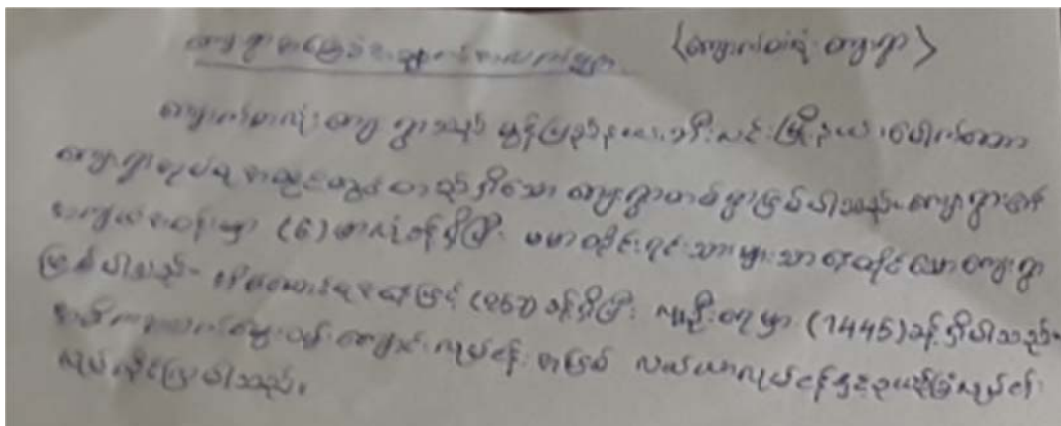 ကျေးရွာအခြေခံအချက်အလက်များ <ကျောက်တလုံးကျေးရွာ>
ကျောက်တလုံးကျေးရွာသည် မွန်ပြည်နယ်၊ ဘီးလင်းမြို့နယ်၊
ကျေးရွာအုပ်စု အတွင်းတွင် တည်ရှိသော ကျေးရွာတစ်ရွာဖြစ်ပါသည်။ ကျေးရွာ၏
အကျယ်အဝန်းမှာ (၆) ဖာလုံခန့်ရှိပြီး ဗမာတိုင်းရင်းသားများသာ နေထိုင်သော ကျေးရွာ
ဖြစ်ပါသည်။ အိမ်ထောင်စုအနေဖြင့် ခန့်ရှိပြီး လူဦးရေမှာ (1445) ခန့်ရှိပါသည်။
အဓိကအသက်မွေးဝမ်းကျောင်းလုပ်ငန်းအဖြစ် လယ်ယာလုပ်ငန်းနှင့် ဥယျာဉ်ခြံလုပ်ငန်း
လုပ်ကိုင်ကြပါသည်။